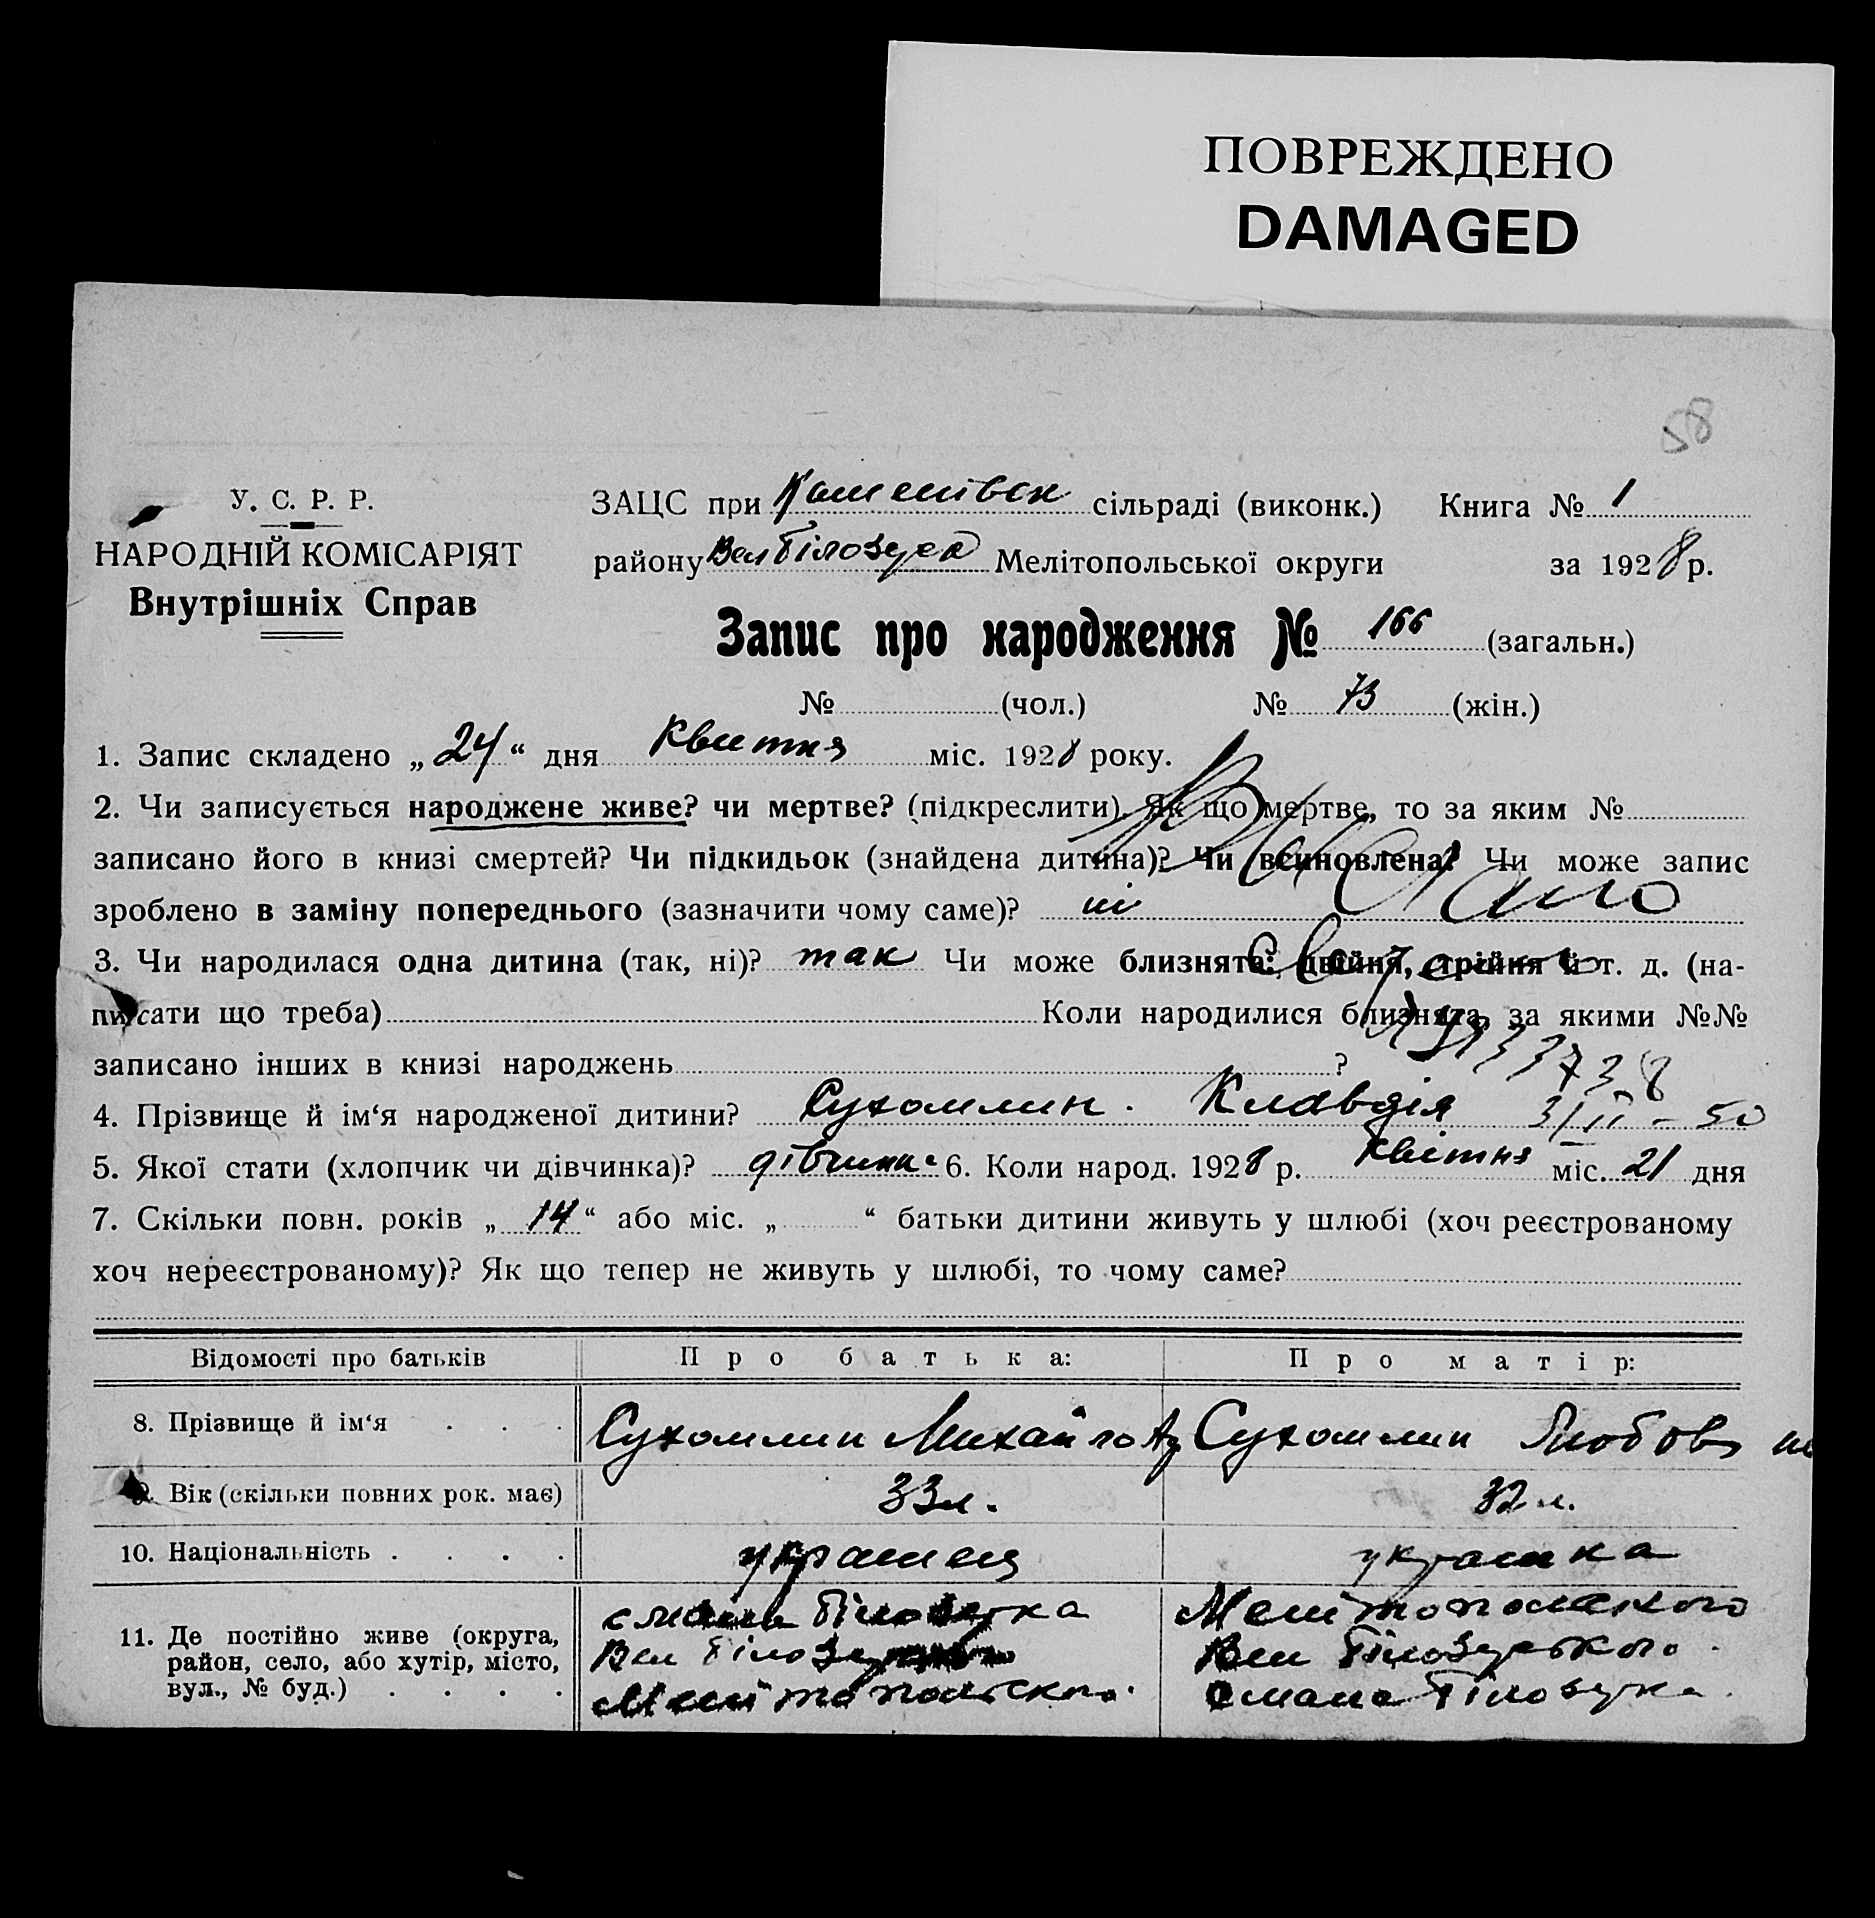 ПОВРЕЖДЕНО
DAMAGED
58
У. С. Р. Р.
НАРОДНІЙ КОМІСАРІЯТ
Внутрішніх Справ
ЗАЦС при сільраді (виконк.) Книга № 1
району Вел Білозерсk Мелітопольської округи за 1928 р.
Запис про народження № 166 (загальн.)
№ (чол.) № 73 (жін.)
1. Запис складено „ 24 “ дня Квитня міс. 1928 року.
2. Чи записується народжене живе? чи мертве? (підкреслити). Як що мертве, то за яким №
записано його в книзі смертей? Чи підкидьок (знайдена дитина)? Чи всиновлена? Чи може запис
зроблено в заміну попереднього (зазначити чому саме)? ні
3. Чи народилася одна дитина (так, ні)? так Чи може близнята: двійня, трійня й т. д. (на-
писати що треба) Коли народилися близнята, за якими №№
записано інших в книзі народжень ?
4. Прізвище й ім‘я народженої дитини? Сухомлин. Клавдія
3/II – 50
5. Якої стати (хлопчик чи дівчинка)? дівчинка 6. Коли народ. 1928 р. Квітня міс. 21 дня
7. Скільки повн. років „ 14 “ або міс. „ “ батьки дитини живуть у шлюбі (хоч реєстрованому
хоч нереєстрованому)? Як що тепер не живуть у шлюбі, то чому саме?
Відомості про батьків Про батька: Про матір:
8. Прізвище й ім‘я . . . Сухомлин Михайло Сухомлин Любов
9. Вік (скільки повних рок. має) 33 л. 32 л.
10. Національність . . . . украинец украинка
11. Де постійно живе (округа,
район, село, або хутір, місто,
вул., № буд.) . . . .
Білозерка
Вел
Мелітопольского.
Мелітопольского
Вел Білозерського.
Білозерка.